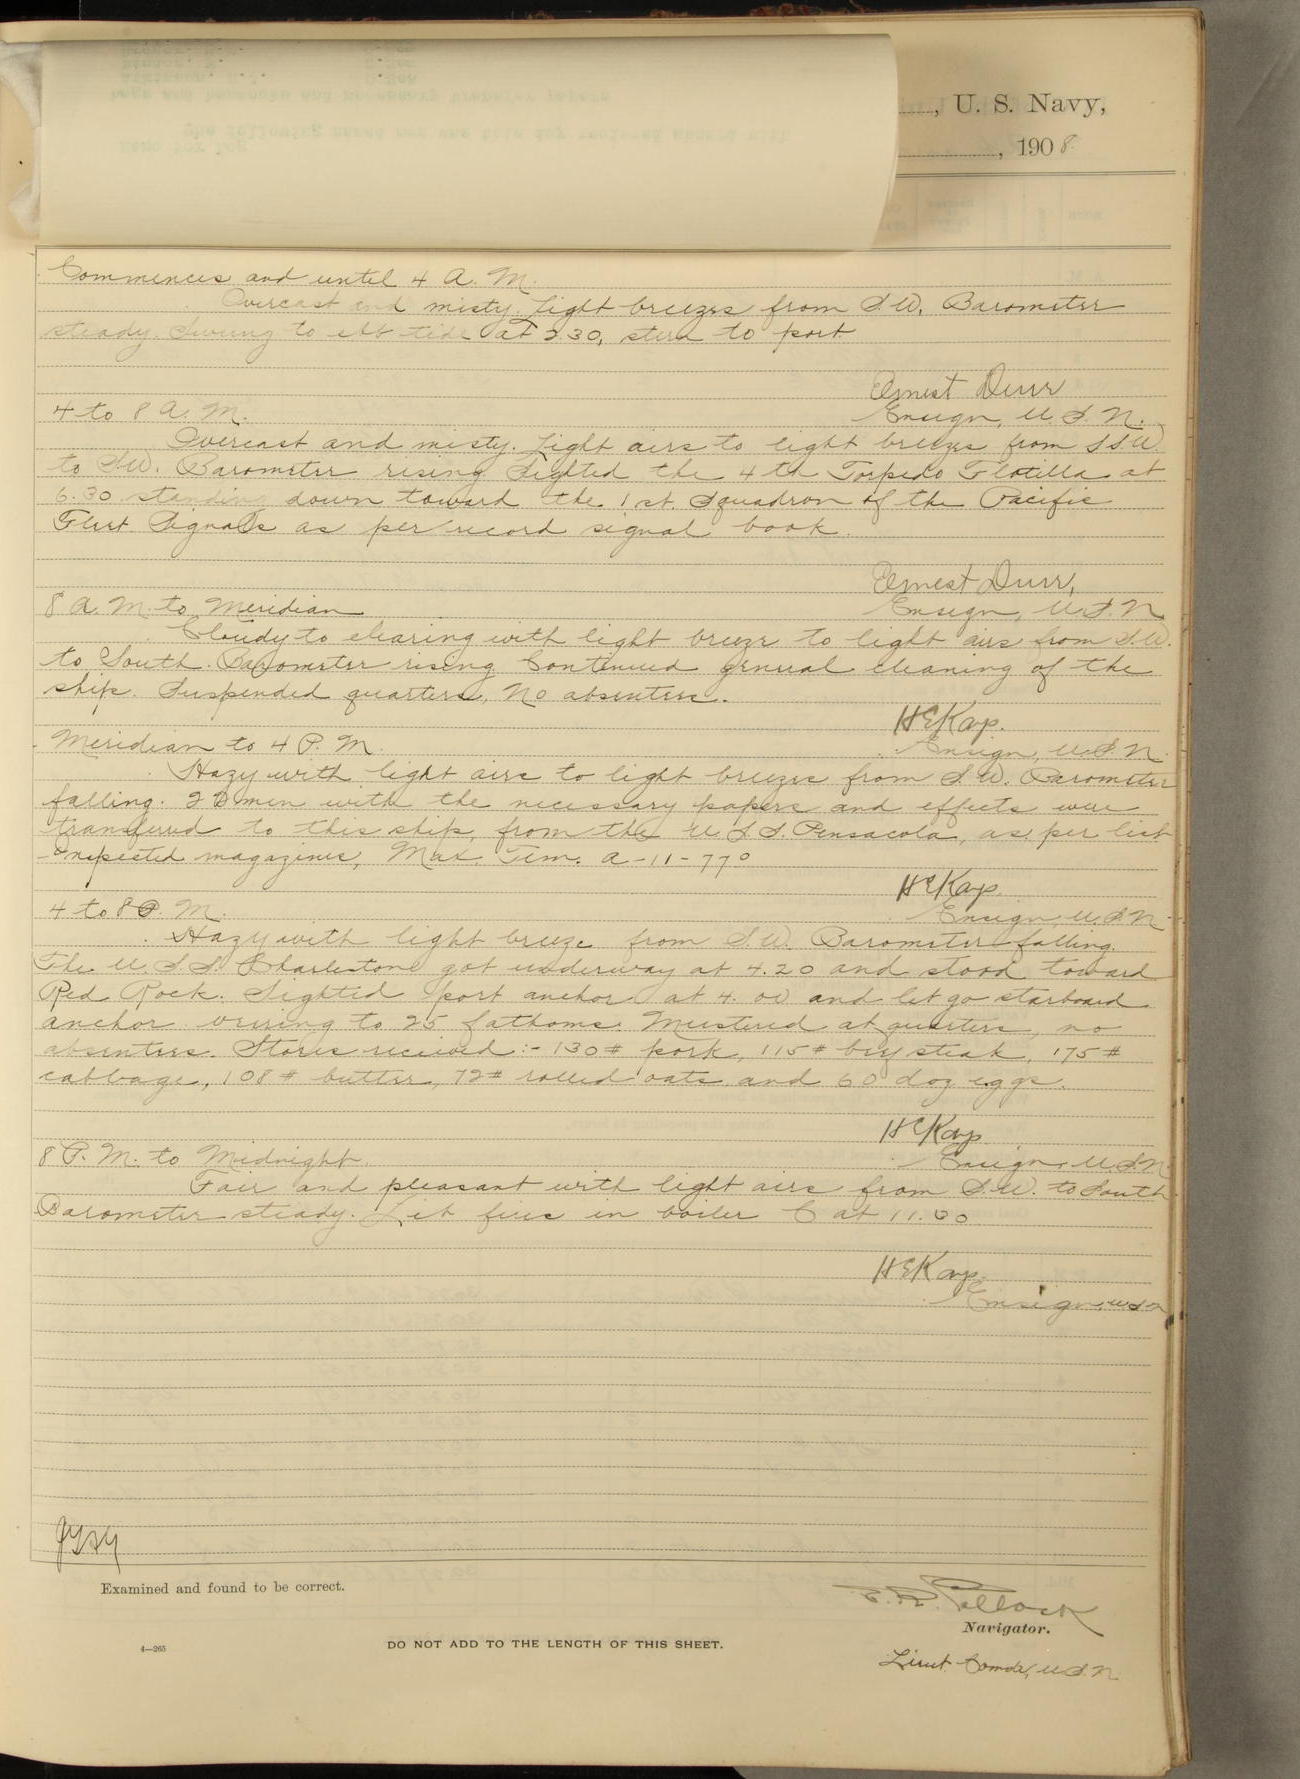 , U. S. Navy,
, 1908.
Commences and until 4 A. M.
Overcast and misty. Light breezes from S.W. Barometer
steady. Swung to ebb tide at 2.30, stern to port.
Ernest Durr
4 to 8 A. M.
Ensign, U. S. N.
Overcast and misty. Light airs to light breezes from S.S.W.
to S.W. Barometer rising. Sighted the 4th Torpedo Flotilla at
6.30 standing down toward the 1st. Squadron of the Pacific
Fleet. Signals as per record signal book.
Ernest Durr,
8 A. M. to Meridian
Ensign, U. S. N.
Cloudy to clearing with light breeze to light airs from S.W.
to South. Barometer rising. Continued general cleaning of the
ship. Suspended quarters. No absentees.
H E Kays.
Meridian to 4 P. M.
Ensign, U. S. N.
Hazy with light airs to light breezes from S. W. Barometer
falling. men with the necessary papers and effects were
transfered to this ship, from the U. S. S. Pensacola, as per list
Inspected magazines, Max. Tem. A-11-77°
H E Kays.
4 to 8 P. M.
Ensign, U. S. N.
Hazy with light breeze from S. W. Barometer falling.
The U. S. S. Charlestone got underway at 4.20 and stood toward
Red Rock. Sighted port anchor at 4. and let go starboard
anchor veering to 25 fathoms. Mustered at quarters, no
absentees. Stores received:- 130# pork, 115# beefsteak, 175#
cabbage, 108# butter, 72# rolled oats and 60 doz eggs.
H E Kays
8 P. M. to Midnight.
Ensign, U. S. N.
Fair and pleasant with light airs from S. W. to South
Barometer steady. Lit fires in boiler C at 11.00
H E Kays.
Ensign, U S N
Examined and found to be correct.
Pollock
Navigator.
4—265
DO NOT ADD TO THE LENGTH OF THIS SHEET.
Lieut. Comdr, U. S. N.